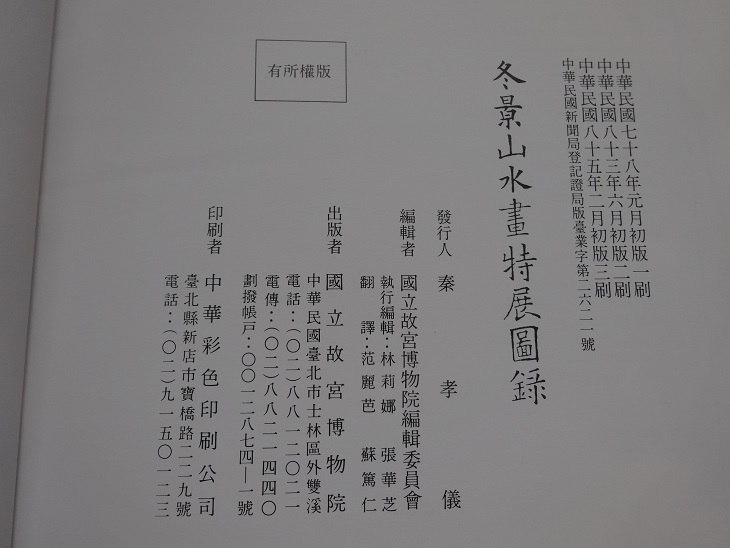 中華民國七十八年元月初版一刷
中華民國八十三年六月初版二刷
中華民國八十五年二月初版三刷
中華民國新聞局登記證局版臺業字第二六二一號
冬景山水畫特展圖錄
發行人 秦孝儀
編輯者 國立故宮博物院編輯委員會
執行編輯：林莉娜 張華芝
翻譯：范麗芭 蘇篤仁
出版者 國立故宮博物院
中華民國臺北市士林區外雙溪
電話：（〇二）八八一二〇二一
電傳：（〇二）八八二一四四〇
劃撥帳戶：〇〇一二八七四—一號
印刷者 中華彩色印刷公司
臺北縣新店市寶橋路二二九號
電話：（〇二）九一五〇一二三
有所權版